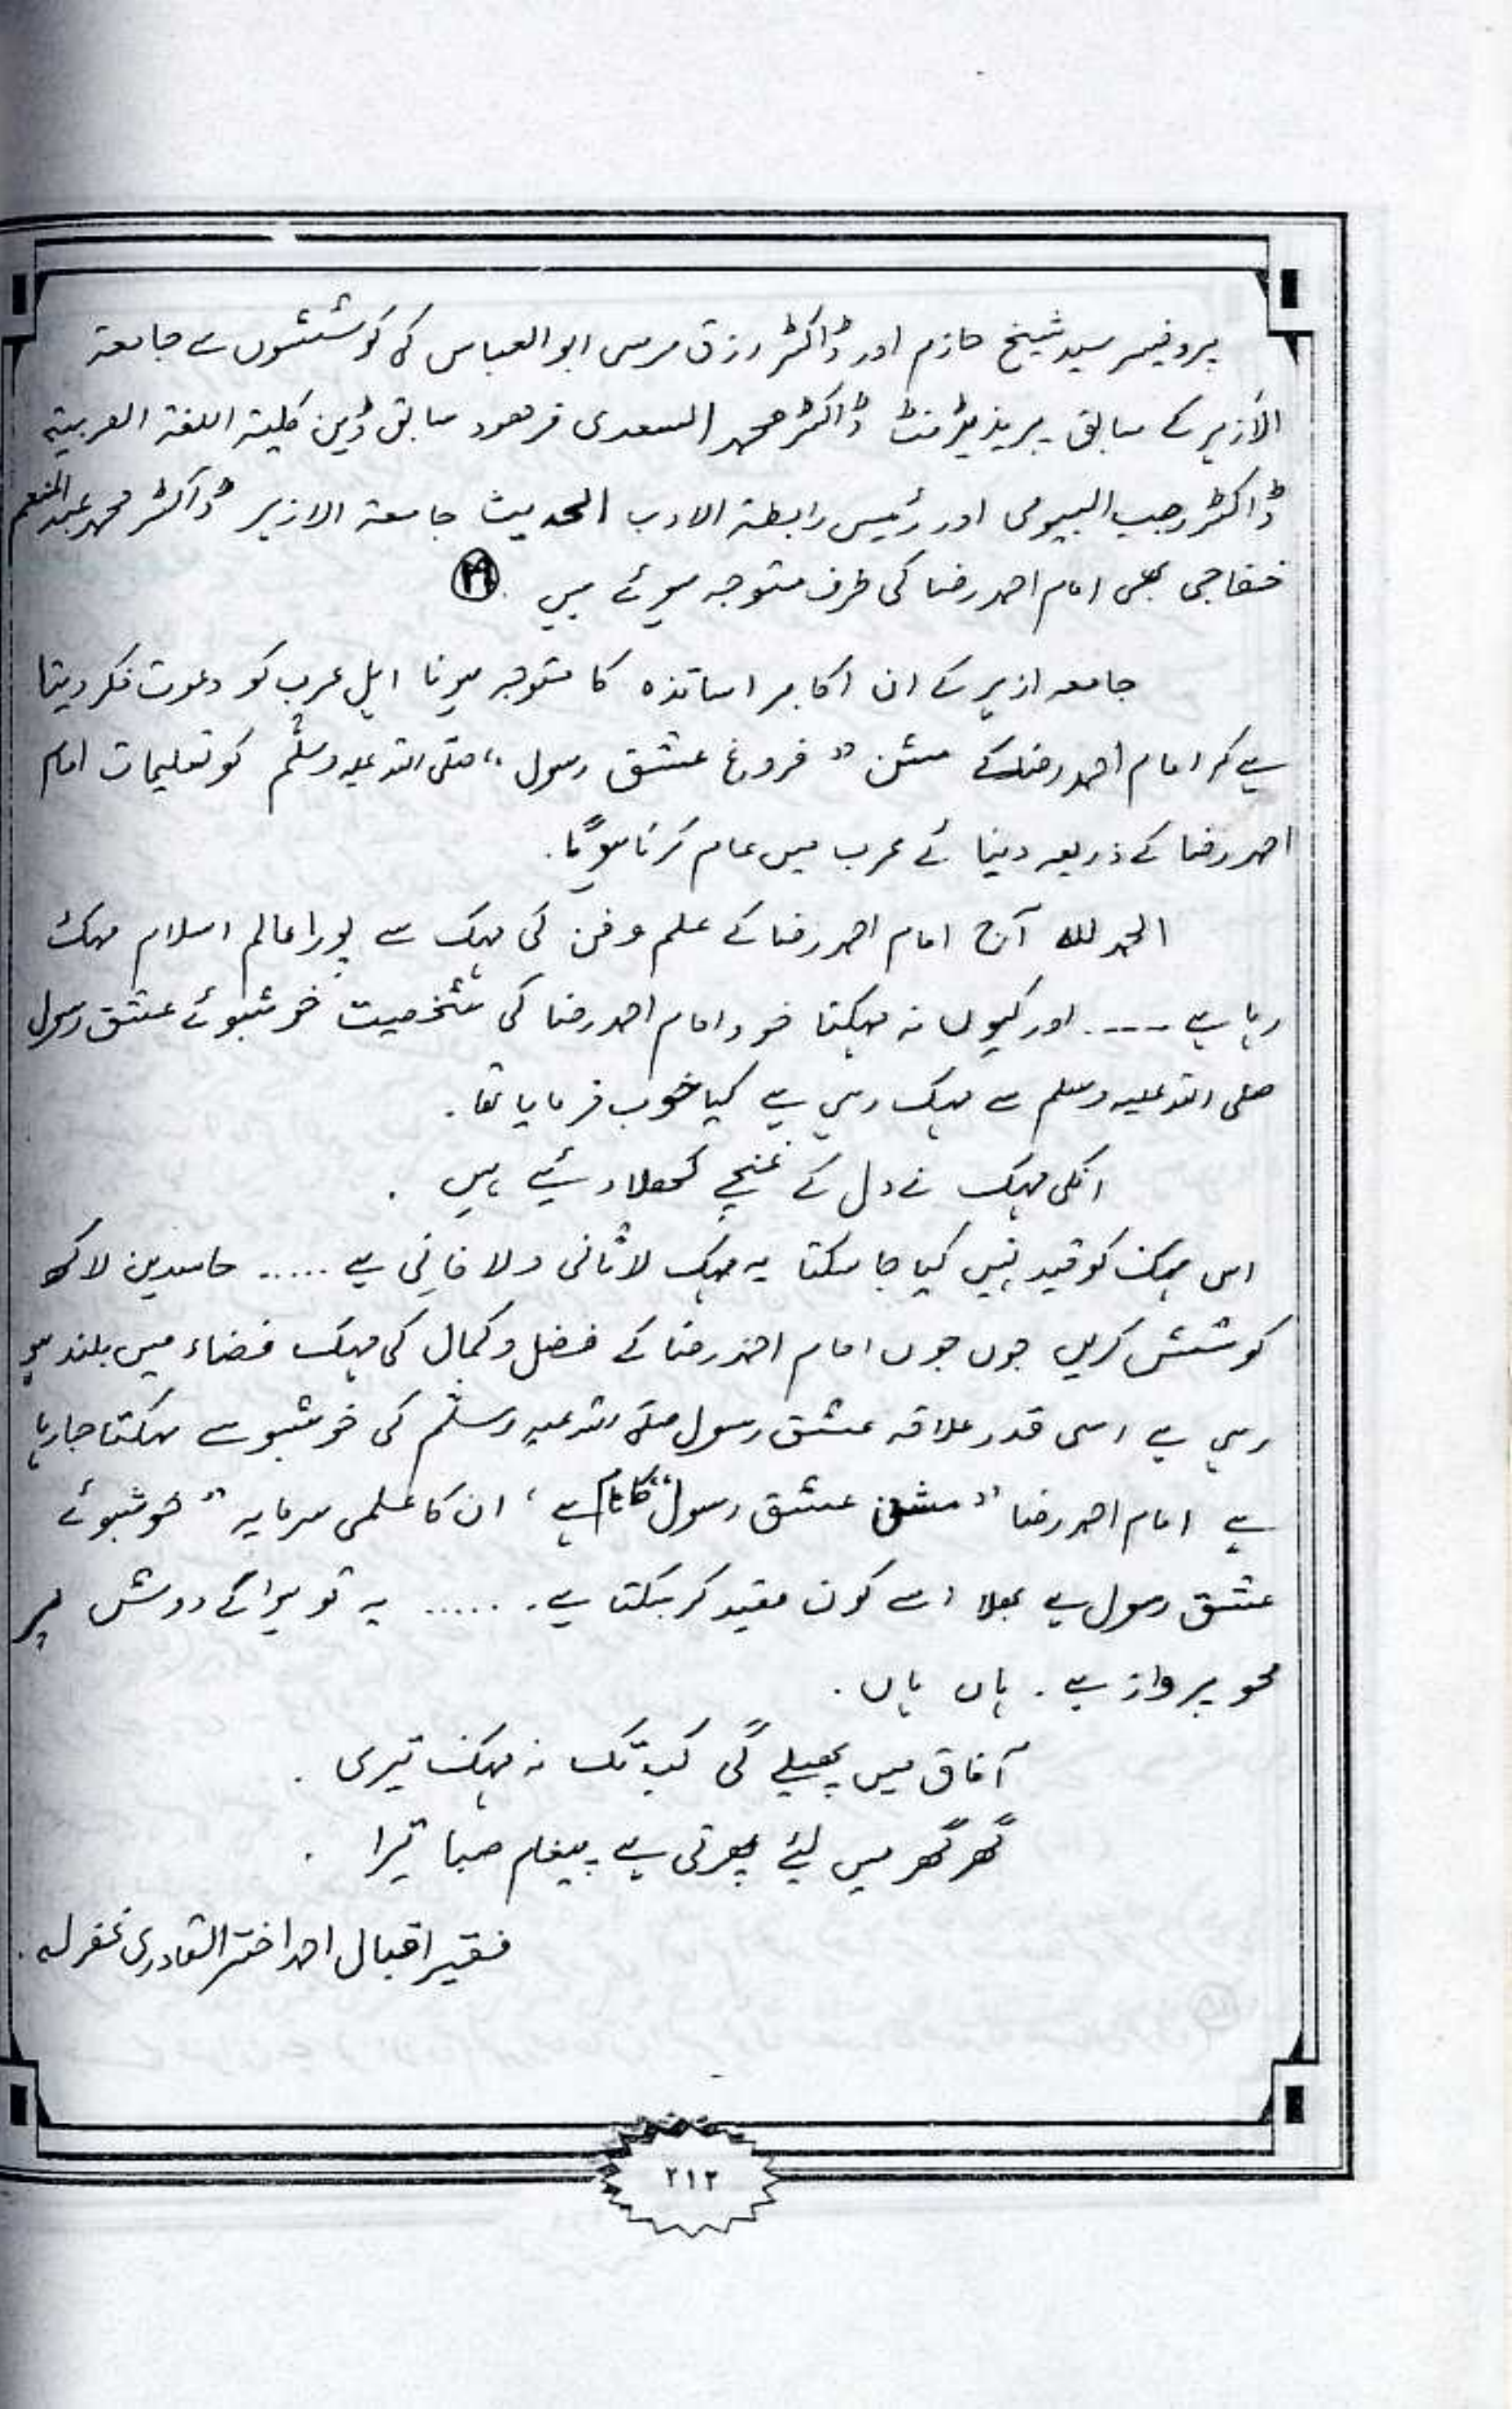 پروفیسر سید شیخ حازم اور ڈاکٹر رزق مرسی ابو العباس کی کوششوں سے جامعۃ
الازہر کے سابق پریذیڈنٹ ڈاکٹر محمد السعدی فرھود سابق ڈین کلیتہ اللغۃ العربیۃ
ڈاکٹر رجب البیومی اور رئیس رابطۃ الادب الحدیث جامعۃ الازہر ڈاکٹر محمد عبد المنعم
خفاجی بھی امام احمد رضا کی طرف متوجہ ہوئے ہیں
جامعہ ازہر کے ان اکابر اساتذہ کا متوجہ ہونا اہل عرب کو دعوت فکر دیتا
ہے کہ امام احمد رضا کے مشن "فروغ عشق رسول" صلی اللہ علیہ وسلم کو تعلیمات امام
احمد رضا کے ذریعہ دنیائے عرب میں عام کرنا ہوگا۔
الحمد للہ آج امام احمد رضا کے علم و فن کی مہک سے پورا عالم اسلام مہک
رہا ہے ---- اور کیوں نہ مہکتا خود امام احمد رضا کی شخصیت خوشبوئے عشق رسول
صلی اللہ علیہ وسلم سے مہک رہی ہے کیا خوب فرمایا تھا۔
انکی مہک نے دل کے غنچے کھلا دیئے ہیں ۔
اس مہک کو قید نہیں کیا جا سکتا یہ مہک لاثانی و لا فانی ہے ..... حاسدین لاکھ
کوشش کریں جوں جوں امام احمد رضا کے فضل و کمال کی مہک فضاء میں بلند ہو
رہی ہے اسی قدر علاقہ عشق رسول صلی اللہ علیہ وسلم کی خوشبو سے مہکتا جا رہا
ہے امام احمد رضا "مشن عشق رسول" کا نام ہے ، ان کا علمی سرمایہ "خوشبوئے
عشق رسول ہے بھلا اسے کون مقید کر سکتا ہے ...... یہ تو ہوا کے دوش پر
محو پرواز ہے ۔ ہاں ہاں ۔
آفاق میں پھیلے گی کب تک نہ مہک تیری ۔
گھر گھر میں لیئے پھرتی ہے پیغام صبا تیرا ۔
فقیر اقبال احمد اختر القادری غفرلہ ۔
۲۱۲